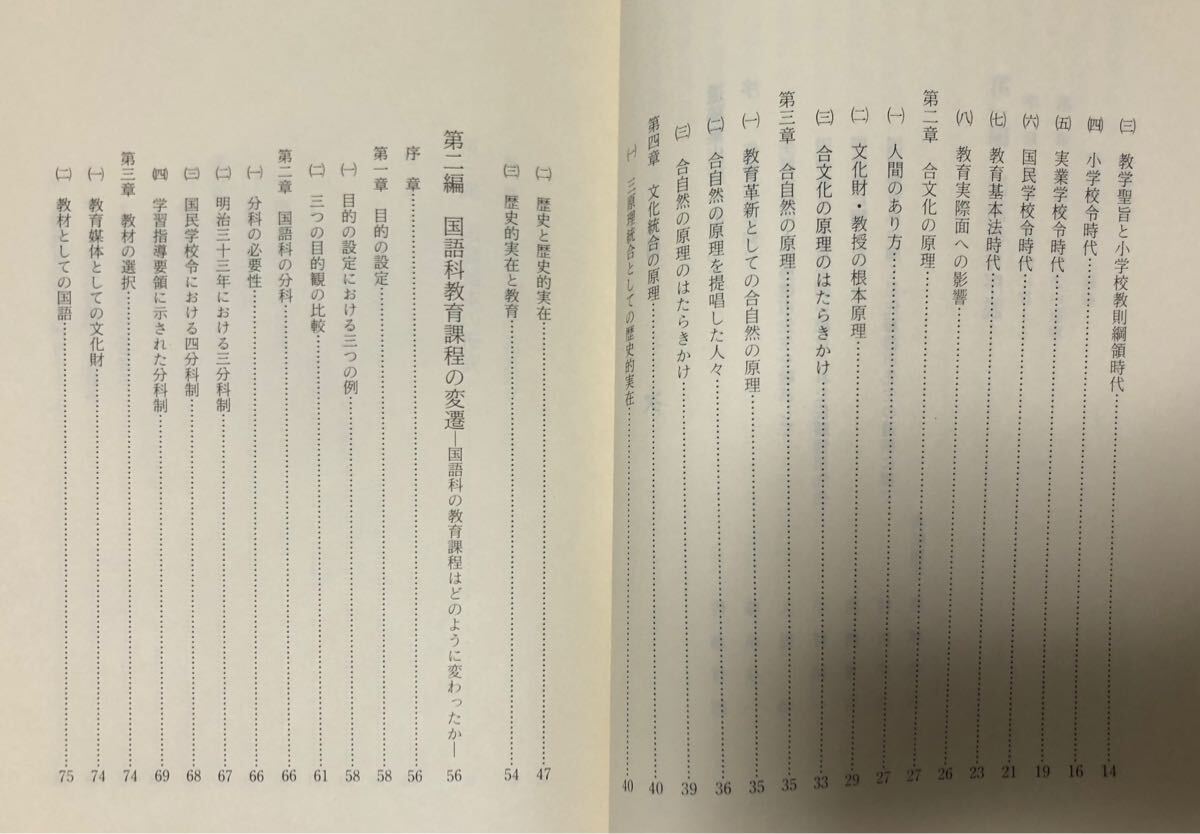 ㈢ 教学聖旨と小学校教則綱領時代……14
㈣ 小学校令時代……16
㈤ 実業学校令時代……19
㈥ 国民学校令時代……21
㈦ 教育基本法時代……23
㈧ 教育実際面への影響……26
第二章 合文化の原理……27
㈠ 人間のあり方……27
㈡ 文化財・教授の根本原理……29
㈢ 合文化の原理のはたらきかけ……33
第三章 合自然の原理……35
㈠ 教育革新としての合自然の原理……35
㈡ 合自然の原理を提唱した人々……36
㈢ 合自然の原理のはたらきかけ……39
第四章 文化統合の原理……40
㈠ 三原理統合としての歴史的実在……40
㈡ 歴史と歴史的実在……47
㈢ 歴史的実在と教育……54
第二編 国語科教育課程の変遷―国語科の教育課程はどのように変わったか―……56
序章……56
第一章 目的の設定……58
㈠ 目的の設定における三つの例……58
㈡ 三つの目的観の比較……61
第二章 国語科の分科……66
㈠ 分科の必要性……66
㈡ 明治三十三年における三分科制……67
㈢ 国民学校令における四分科制……68
㈣ 学習指導要領に示された分科制……69
第三章 教材の選択……74
㈠ 教育媒体としての文化財……74
㈡ 教材としての国語……75